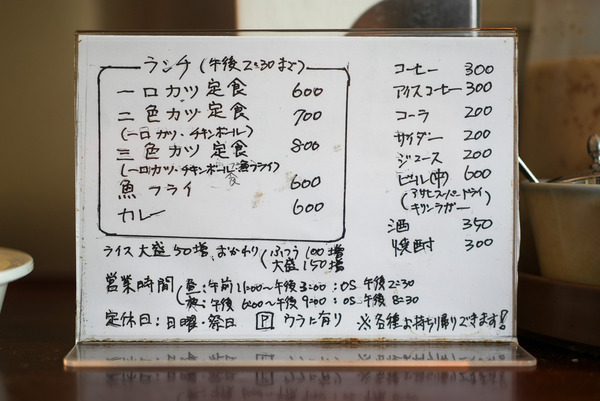 ランチ (午後2:30まで)
一口カツ定食 600
二色カツ定食 700
(一口カツ・チキンボール)
三色カツ定食 800
(一口カツ・チキンボール・魚フライ)
魚フライ定食 600
カレー 600
コーヒー 300
アイスコーヒー 300
コーラ 200
サイダー 200
ジュース 200
ビール(中) 600
(アサヒスーパードライ
キリンラガー)
酒 350
焼酎 300
ライス大盛50増 おかわり(ふつう100増
大盛150増
営業時間(昼:午前11:00〜午後3:00:OS 午後2:30
夜:午後6:00〜午後9:00:OS 午後8:30
定休日:日曜・祭日 P ウラに有り ※各種お持ち帰りできます!